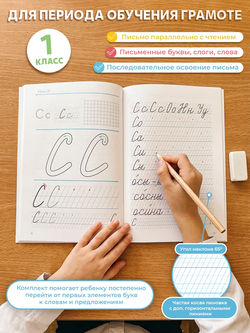 ДЛЯ ПЕРИОДА ОБУЧЕНИЯ ГРАМОТЕ
1
КЛАСС
Письмо параллельно с чтением
Письменные буквы, слоги, слова
Последовательное освоение письма
Сс Сс
С С
С С
С с
Сс Сс Оо Нн Уу
Со
Са
Си
Су
осы
осины
осина
Угол наклона 65°
Частая косая линовка
с доп. горизонтальными
линиями
Комплект помогает ребенку постепенно
перейти от первых элементов букв
к словам и предложениям